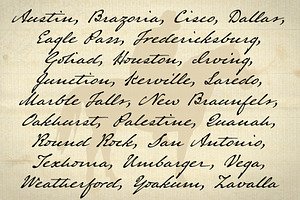 Austin, Brazoria, Cisco, Dallas,
Eagle Pass, Fredericksburg,
Goliad, Houston, Irving,
Junction, Kerville, Laredo,
Marble Falls, New Braunfels,
Oakhurst, Palestine, Quanah,
Round Rock, San Antonio,
Texhoma, Umbarger, Vega,
Weatherford, Yoakum, Zavalla